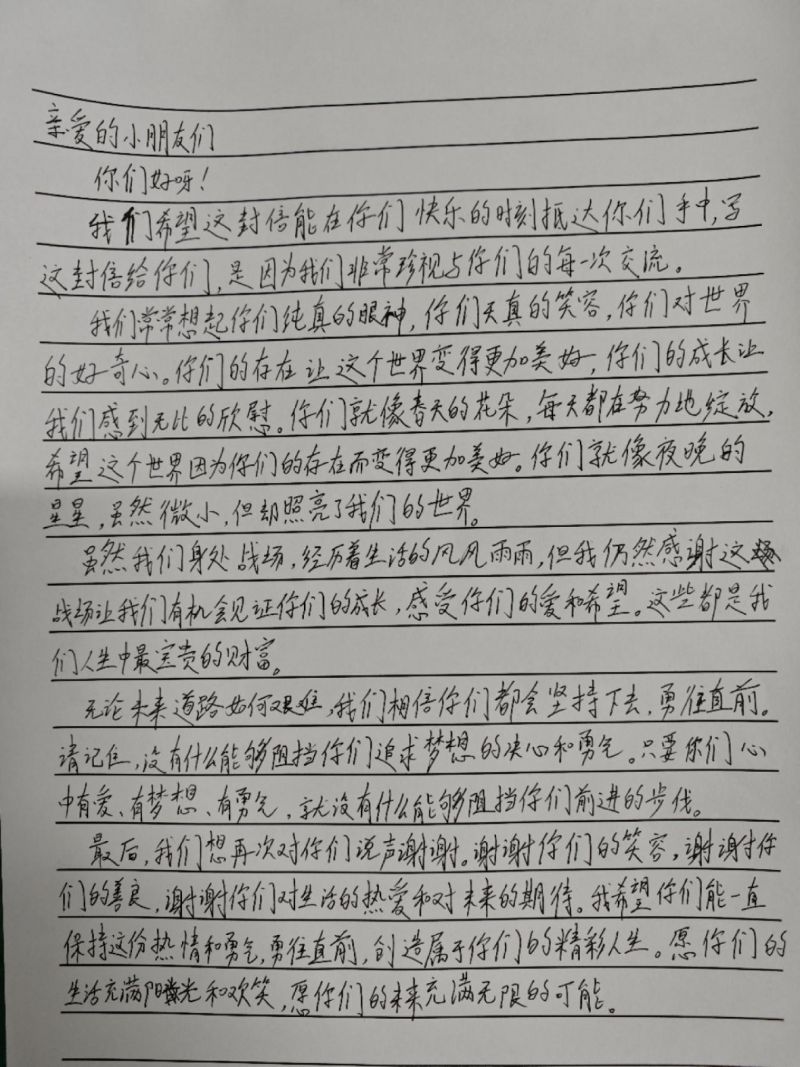 亲爱的小朋友们
你们好呀！
我们希望这封信能在你们快乐的时刻抵达你们手中,写
这封信给你们,是因为我们非常珍视与你们的每一次交流。
我们常常想起你们纯真的眼神,你们天真的笑容,你们对世界
的好奇心。你们的存在让这个世界变得更加美好,你们的成长让
我们感到无比的欣慰。你们就像春天的花朵,每天都在努力地绽放,
希望这个世界因为你们的存在而变得更加美好。你们就像夜晚的
星星,虽然微小,但却照亮了我们的世界。
虽然我们身处战场,经历着生活的风风雨雨,但我仍然感谢这
战场让我们有机会见证你们的成长,感受你们的爱和希望。这些都是我
们人生中最宝贵的财富。
无论未来道路如何艰难,我们相信你们都会坚持下去,勇往直前。
请记住,没有什么能够阻挡你们追求梦想的决心和勇气。只要你们心
中有爱、有梦想、有勇气,就没有什么能够阻挡你们前进的步伐。
最后,我们想再次对你们说声谢谢。谢谢你们的笑容,谢谢你
们的善良,谢谢你们对生活的热爱和对未来的期待。我希望你们能一直
保持这份热情和勇气,勇往直前,创造属于你们的精彩人生。愿你们的
生活充满阳光和欢笑,愿你们的未来充满无限的可能。